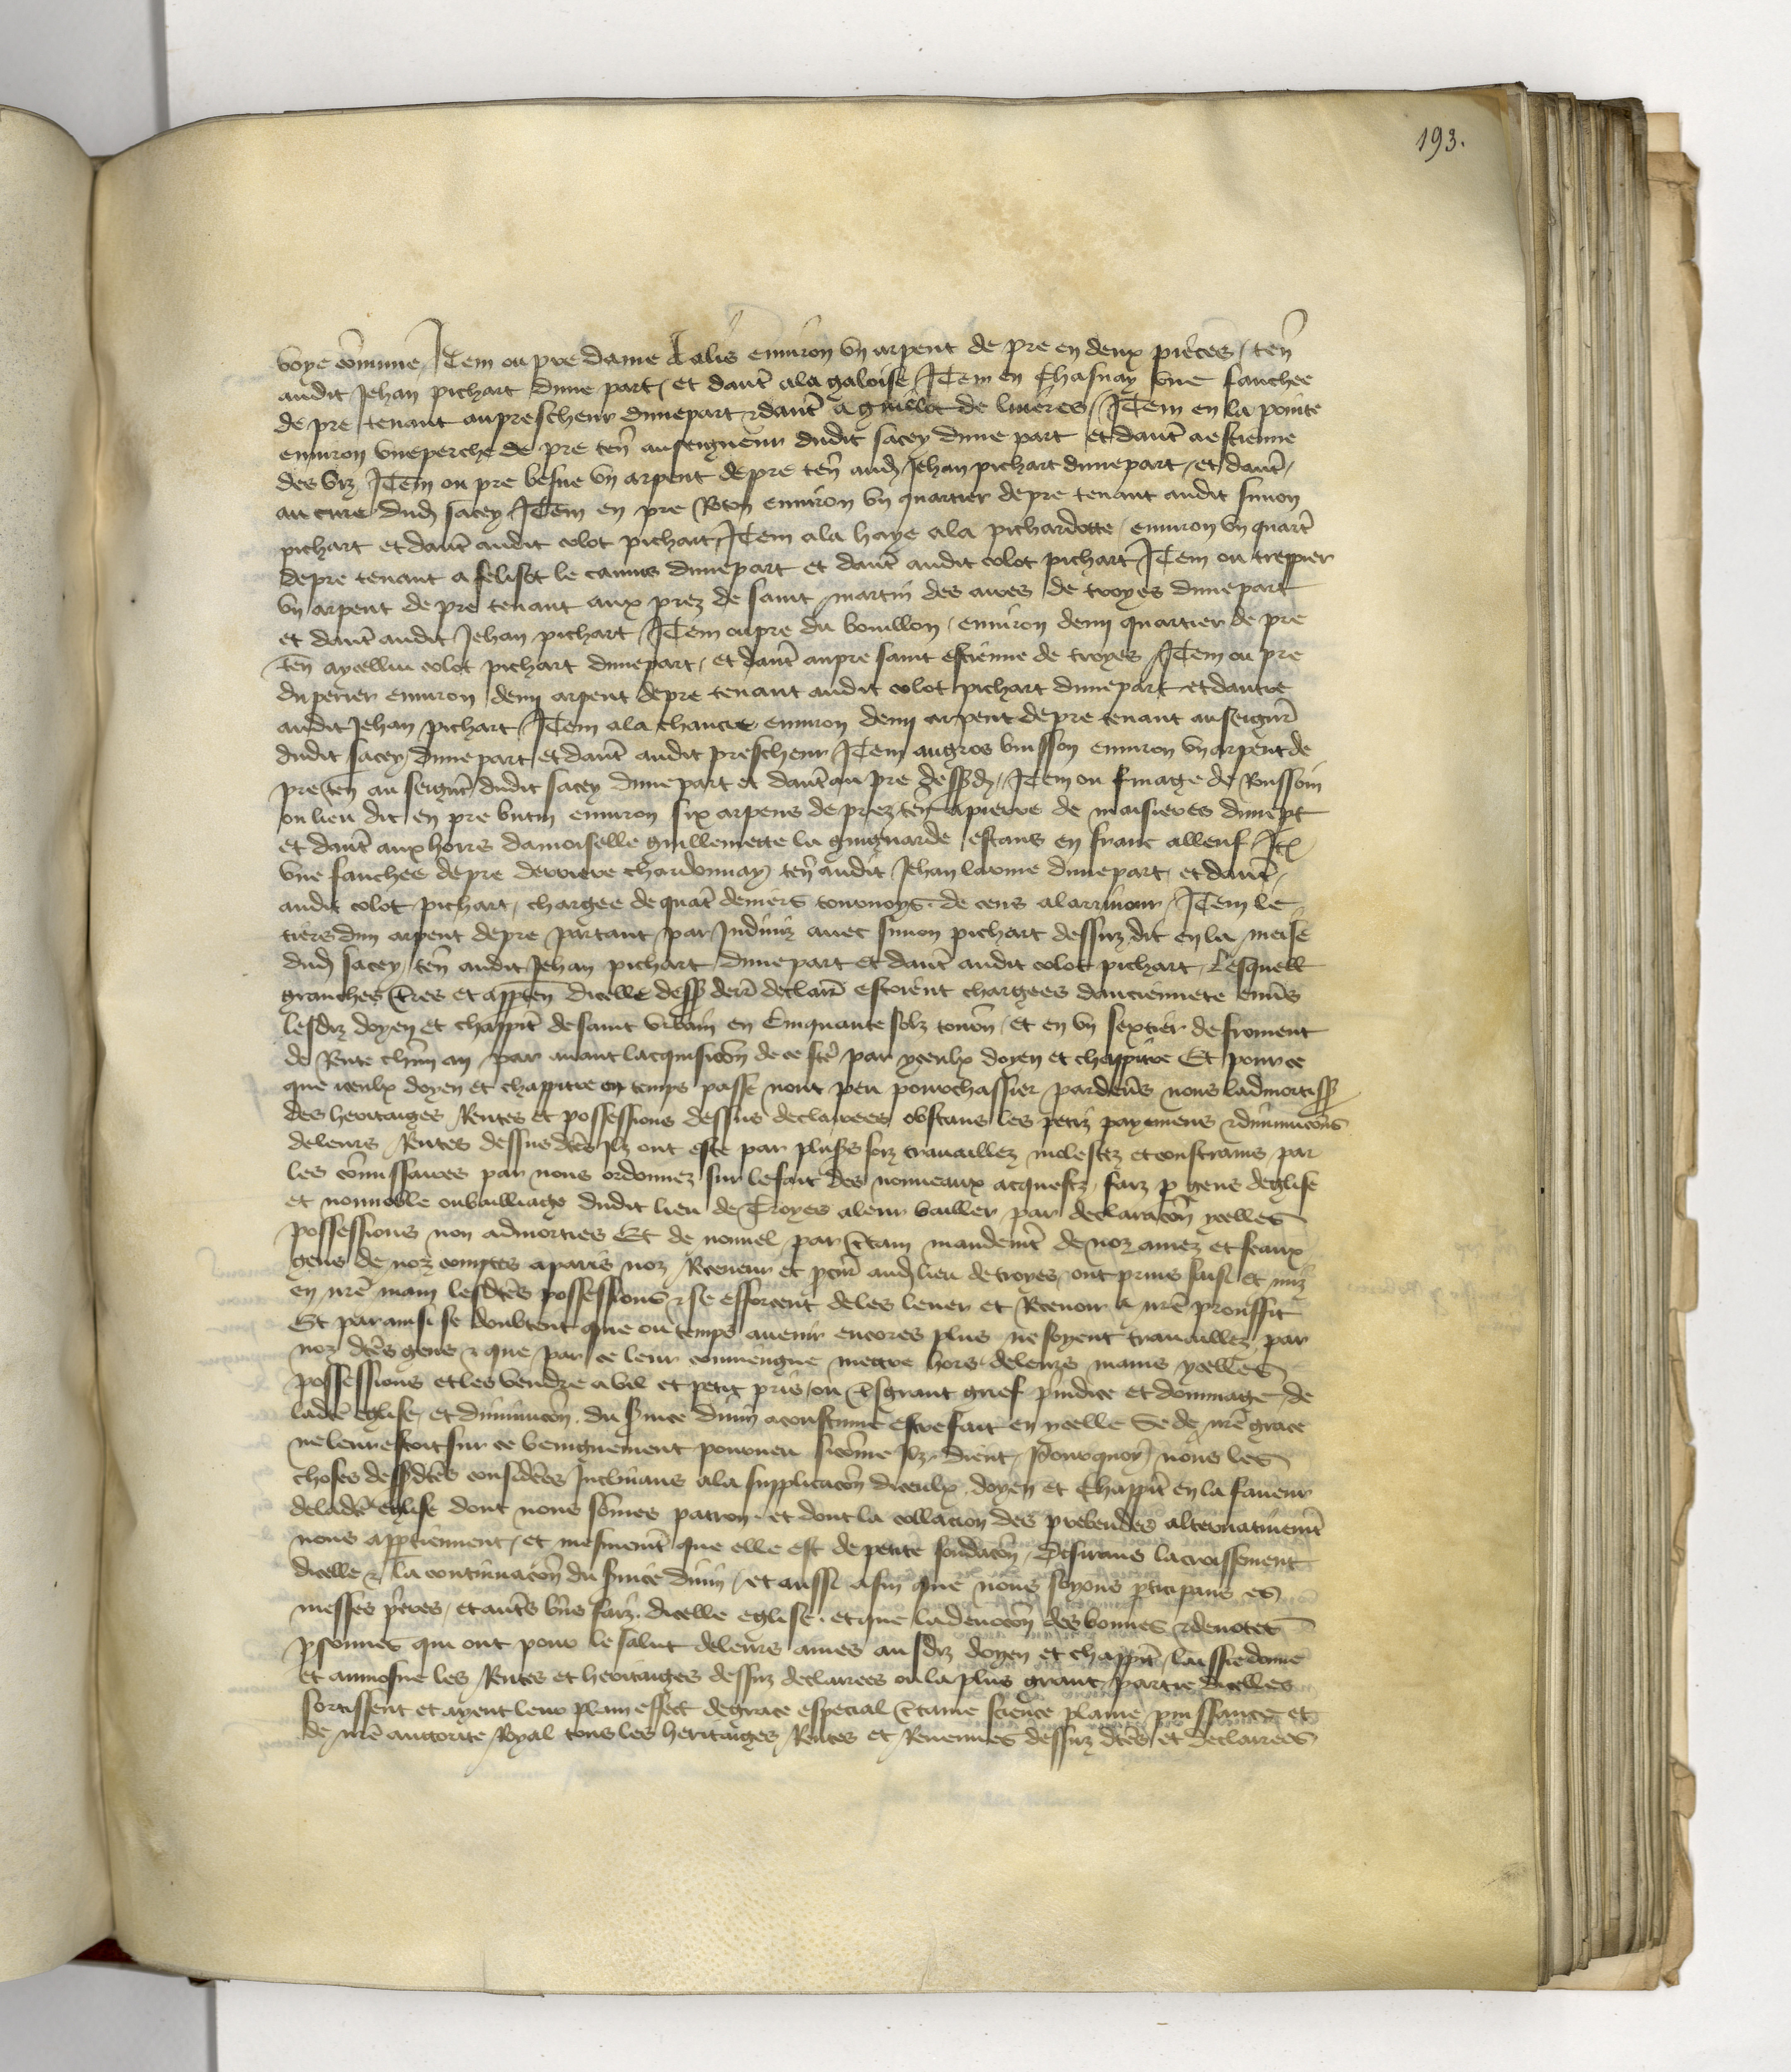 193.
voye cõmune Item ou pre dame Aalis environ un arpent de pre en deux pieces / ten̄
audit Jehan pichart dune part / et daut̄ ala galoise Item en Chasnay une fauchee
de pre tenant au prescheur dunepart & daut̄ a guillot de lineres / Item en la pointe
environ uneperche de pre ten̄ au seigneur dudit sacey dune part et daut̄ a estienne
des Item ou pre besne un arpent depre ten̄ aud Jehan pichart dunepart / et daut̄ /
au cure dud sacey Item en pre environ un quartier depre tenant audit simon
pichart et daut̄ audit colot pichart / Item ala haye ala pichardotte / environ un quart̄
depre tenant a felisot le camus dunepart et daut̄ audit colot pichart Item ou treppier
un arpent de pre tenant aux prez de saint martin des aires de troyes dunepart
et daut̄ audit Jehan pichart / Item oupre du bouillon / environ demi quartier de pre
ten̄ aycellui colot pichart dunepart / et daut̄ aupre saint estienne de troyes Item ou pre
du perier environ demi arpent depre tenant audit colot pichart dunepart et dautre
audit Jehan pichart / Item ala environ demi arpent depre tenant au seigūr
dudit sacey dunepart et daut̄ audit prescheur Item augros buisson environ un arpent de
pre ten̄ au seigūr dudit sacey dunepart et daut̄ au pre dessd / Item ou finage de Roussoin
ou lieu dit en pre environ six arpens de prez ten̄ apierre de maisieres dunept
et daut̄ aux hoirs damoiselle guillemette la guignarde / estans en franc alleuf It
une fauchee depre derriere chardonnay ten̄ audit Jehan dunepart et daut̄ /
audit colot pichart / chargee de quat̄ deniers tournoys de cens Item le
tiers dun arpent depre partant par Indiviz avec simon pichart dessuz dit en la meise
dud sacey / ten̄ audit Jehan pichart dunepart et daut̄ audit colot pichart / Lesquell
granches t̄res et apparten̄ dicelle dess declair̄ estoient chargees danciennete env̄s
lesdiz doyen et chappit̄ de saint urbain en Cinquante solz tourn̄ / et en un sextier de froment
de Rente chūn an par avant lacquisicōn de ce ste par yceulx doyen et chappitre Et pource
que iceulx doyen et chappitre en temps passe nont peu pourchassier pardev̄s nous ladmortiss
des heritaiges Rentes et possessions dessus declairees obstans les petiz payemens & diminucōns
deleurs Rentes dessusdc̄es Ilz ont este par plus̄s foiz travaillez molestez et constrains par
les cōmissaires par nous ordonnez sur lefait des nouveaux acquestz / faiz p gens deglise
et nonnoble oubailliage dudit lieu de Troyes aleur bailler par declaracōn ycelles
possessions non admorties Et de nouvel par c̄tain mandemt̄ de noz amez et feaulx
gens de noz comptes aparis noz Receveur et pcur̄ aud lieu de troyes / ont prins saisi et miz
en nr̄e main lesdc̄es possessions & se efforcent deles lever et Recevoir a nr̄e prouffit
Et par ainsi se doubtoit que ou temps avenir encores plus ne soyent travaillez / par
noz dc̄es gens & que par ce leur conviengne mettre hors deleurs mains ycelles
possessions et les vendre a vil et petit pris / ou t̄sgrant grief p̄iudice et dommage de
ladc̄e eglise / et diminucōn du s̄vice divin acoustume estre fait en ycelle Se de nr̄e grace
neleur estoit sur ce benignement pourveu sicōme Ilz dient / Pourquoy nous les
choses dessdc̄es consider̄es Inclinans ala supplicacōn diceulx doyen et Chappit̄ en la faveur
deladc̄e eglise dont nous sōmes patron / et dont la collacion des prebendes alternativemt̄
nous appartiennent / et mesmemt̄ que elle est de petite fondacōn / Desirans lacroissement
dicelle & la continuacōn du s̄vice divin / et aussi afin que nous soyons pticipans es
messes p̄ieres / et aut̄s b̄ns faiz dicelle eglise / et que la devocōn des bonnes & devotes
psonnes qui ont pour le salut deleurs ames ausdiz doyen et chappit̄ / laissie donne
et aumosne les Rentes et heritaiges dessuz declairees ou la plus grant partie dicelles
sortissent et ayent leur plain effect degrace especial c̄taine science plaine puissance et
de nr̄e auctorite Royal tous les heritaiges Rentes et Revenues dessuz dc̄es et declairees